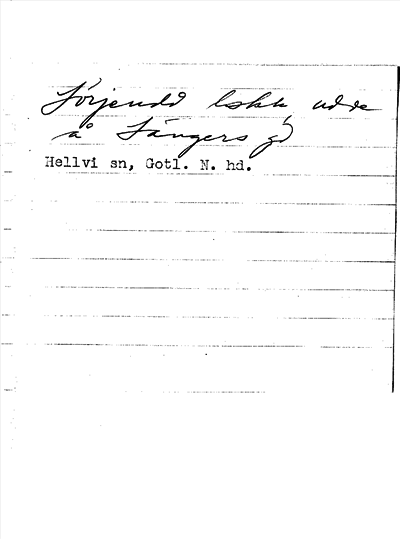 Jörjendd lskk, udde
å Sängers gd
Hellvi sn, Gotl. N. hd.